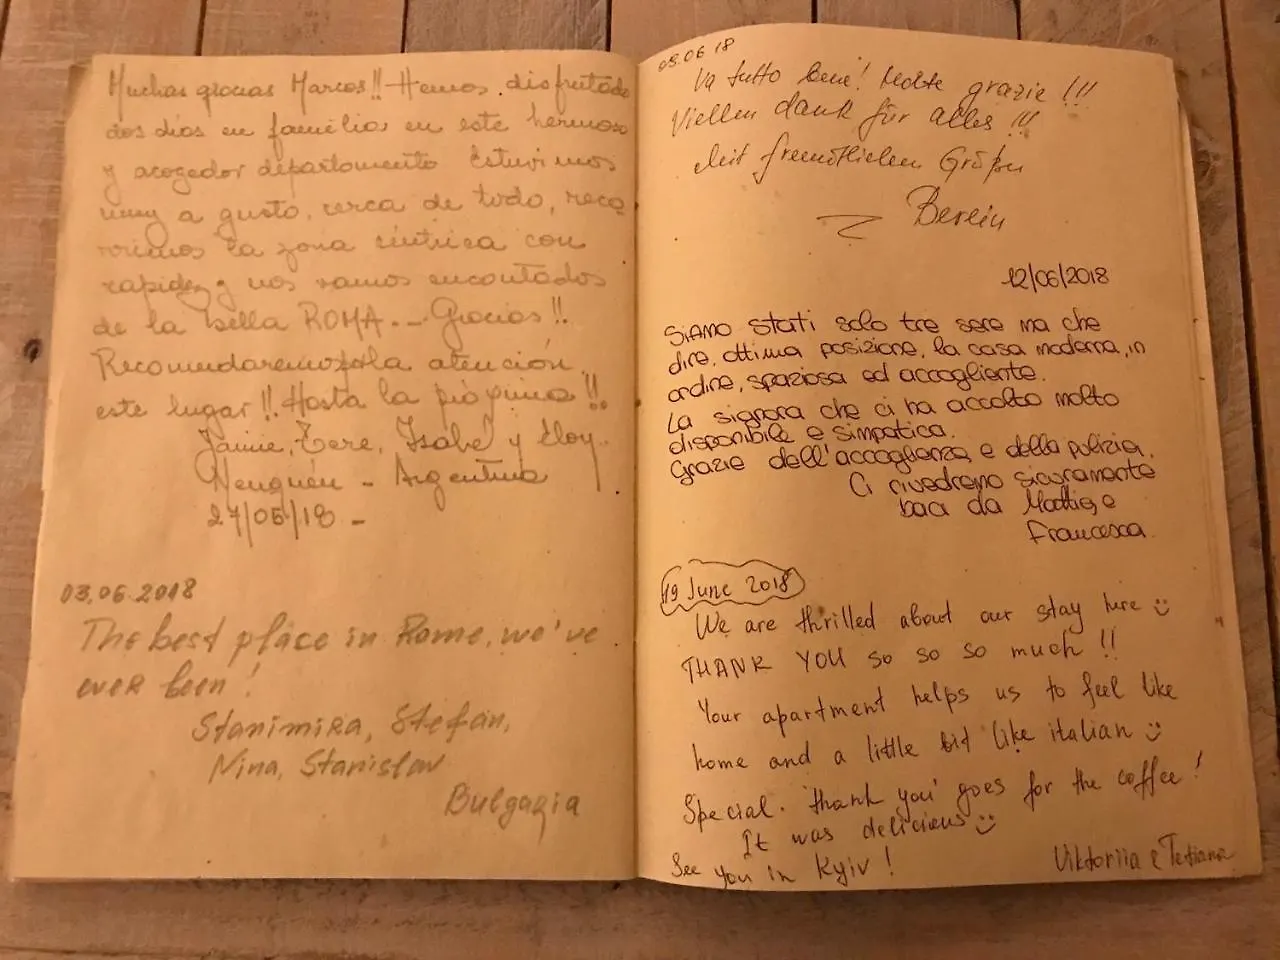 Muchas gracias Marcos!! Hemos disfrutado
dos días en familia en este hermoso
y acogedor departamento Estuvimos
muy a gusto, cerca de todo, reco
rrimos la zona céntrica con
rapidez y nos vamos encantados
de la bella ROMA.-- Gracias!!
Recomendaremos la atención
este lugar!! Hasta la próxima!!
Jaime, Tere, Isabel y Eloy.
Neuquén - Argentina
27/05/18 -
03.06.2018
The best place in Rome, we've
ever been!
Stanimira, Stefan,
Nina, Stanislav
Bulgaria
03.06 18
Va tutto bene! Molte grazie!!!
Viellen dank für alles!!!
Mit freundlichen Grüßen
Berlin
12/06/2018
SIAMO stati solo tre sere ma che
dire, ottima posizione, la casa moderna, in
ordine, spaziosa ed accogliente.
La signora che ci ha accolto molto
disponibile e simpatica.
Grazie dell'accoglienza e della pulizia.
Ci rivedremo sicuramente
baci da Mattia e
Francesca.
19 June 2018
We are thrilled about our stay here
THANK YOU so so so much!!
Your apartment helps us to feel like
home and a little bit like italian
Special. thank you' goes for the coffee!
It was delicious
See you in Kyiv!
Viktoriia e Tetiana